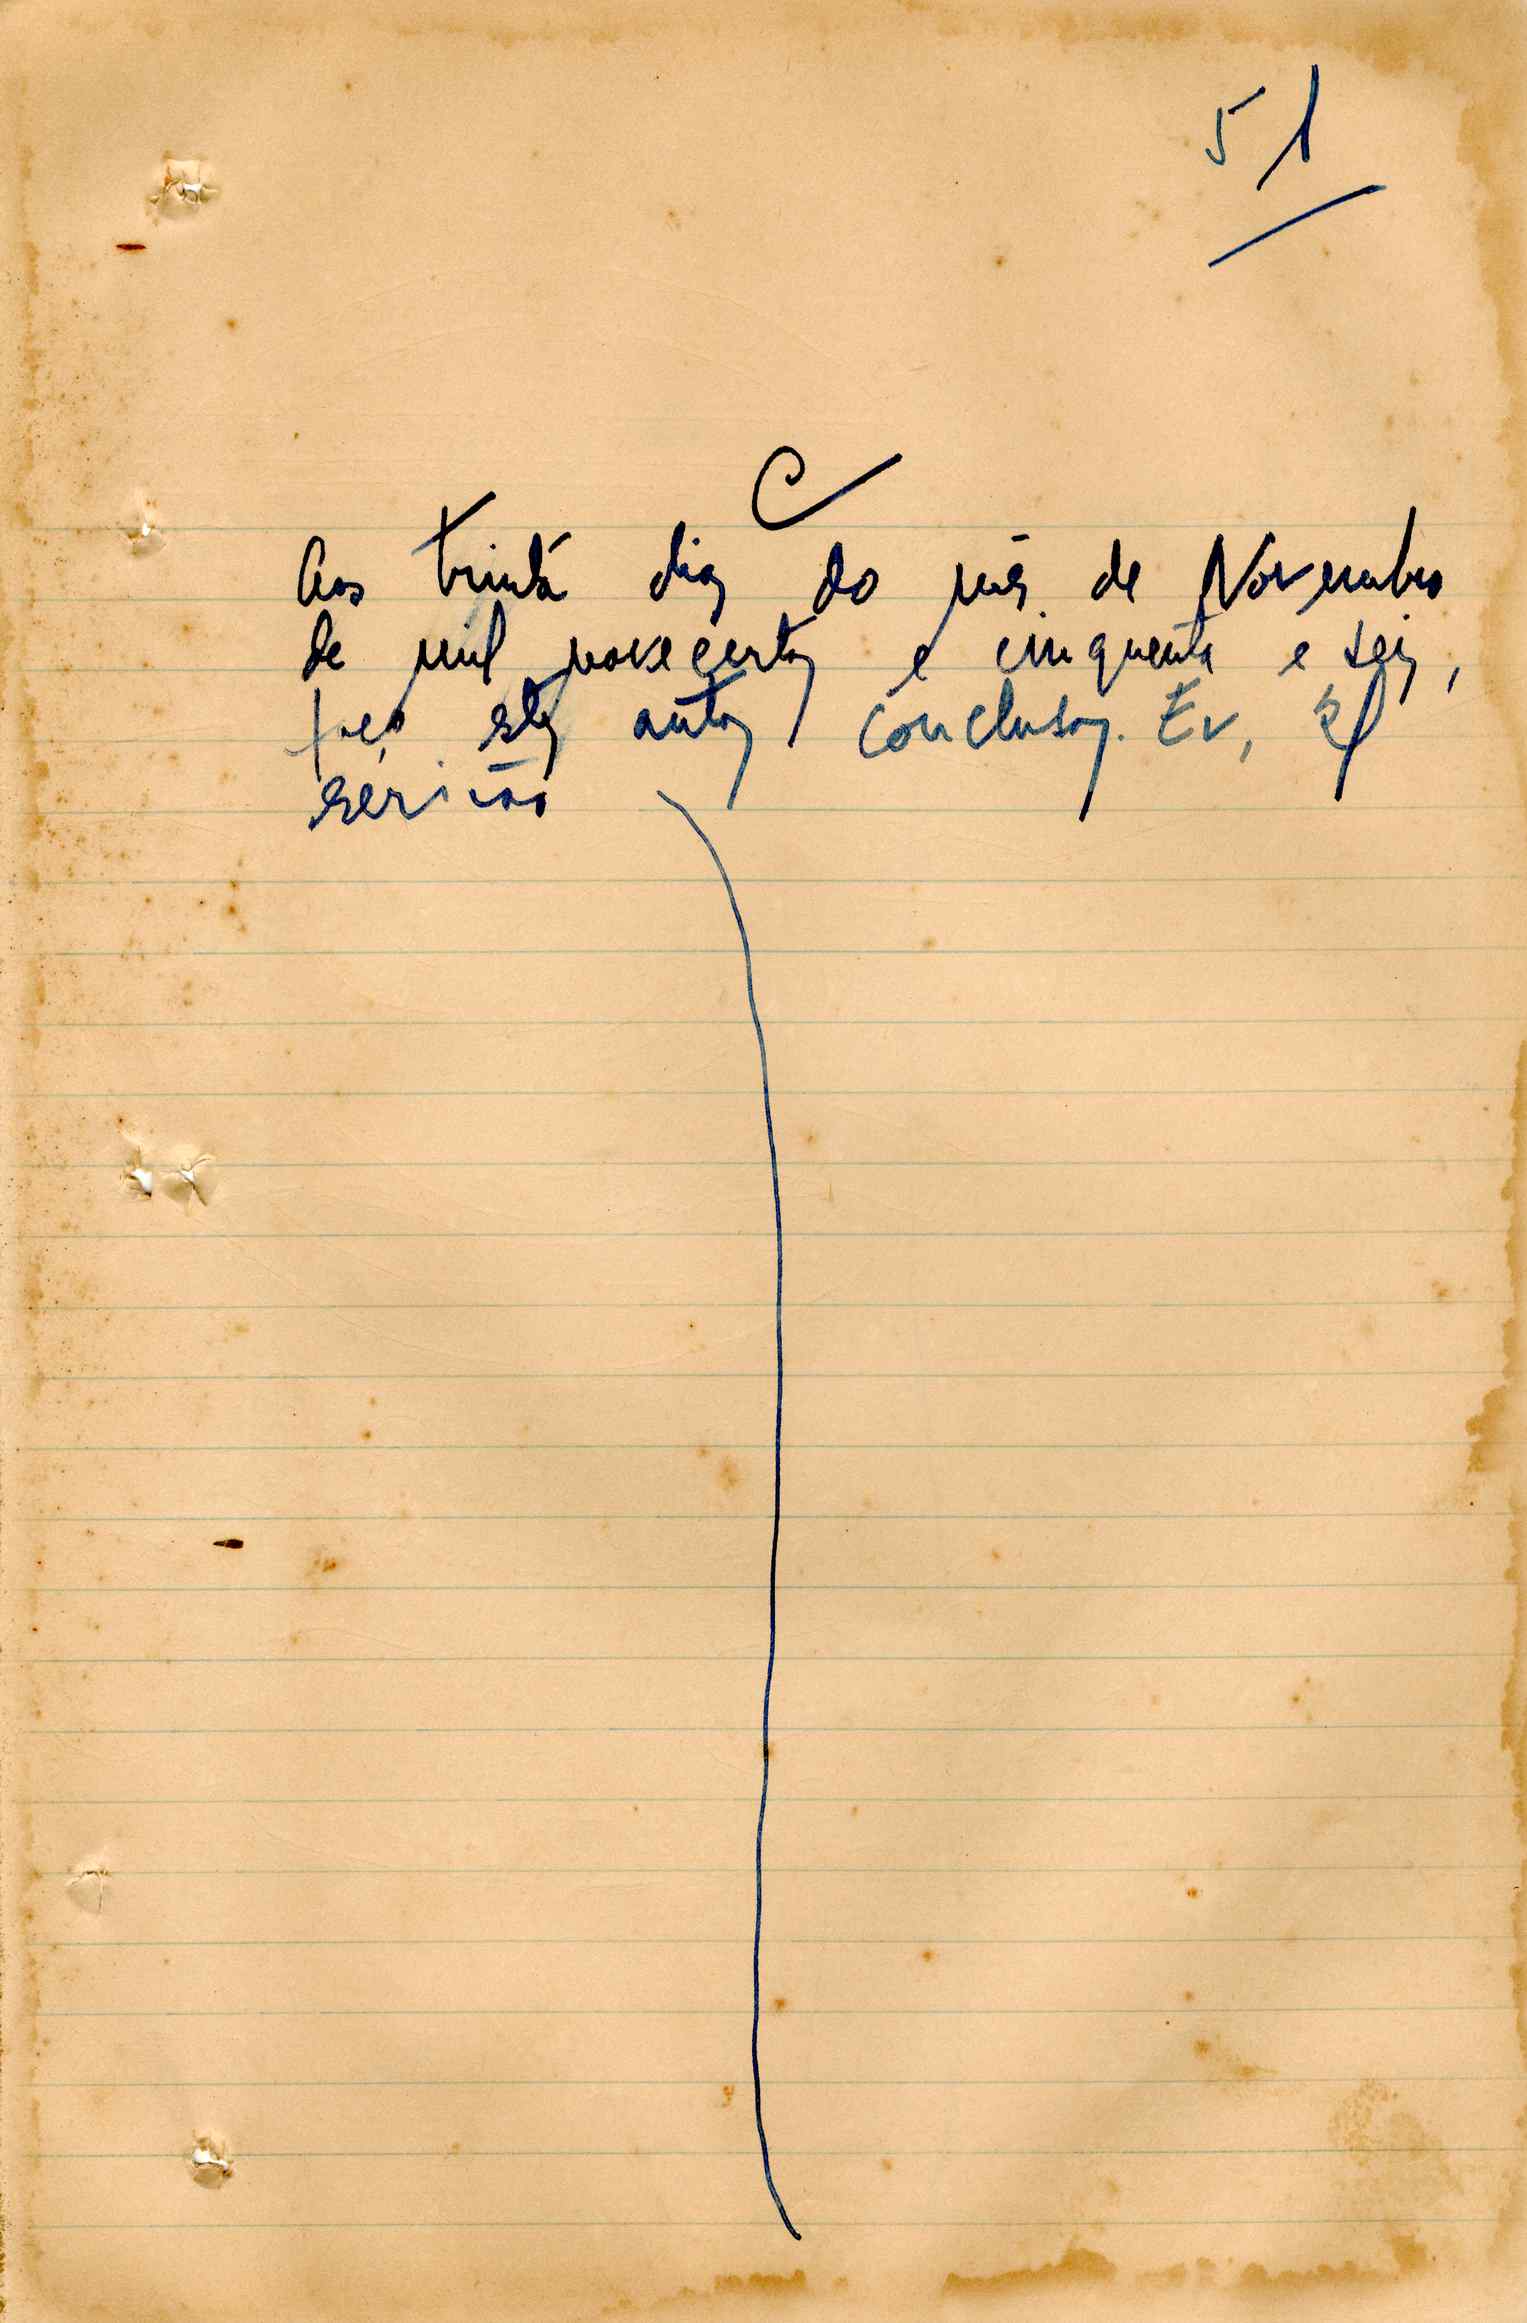 51
C
Aos trinta dias do mês de Novembro
de mil novecentos e cinquenta e seis,
faço estes autos conclusos. Eu,
escrivão